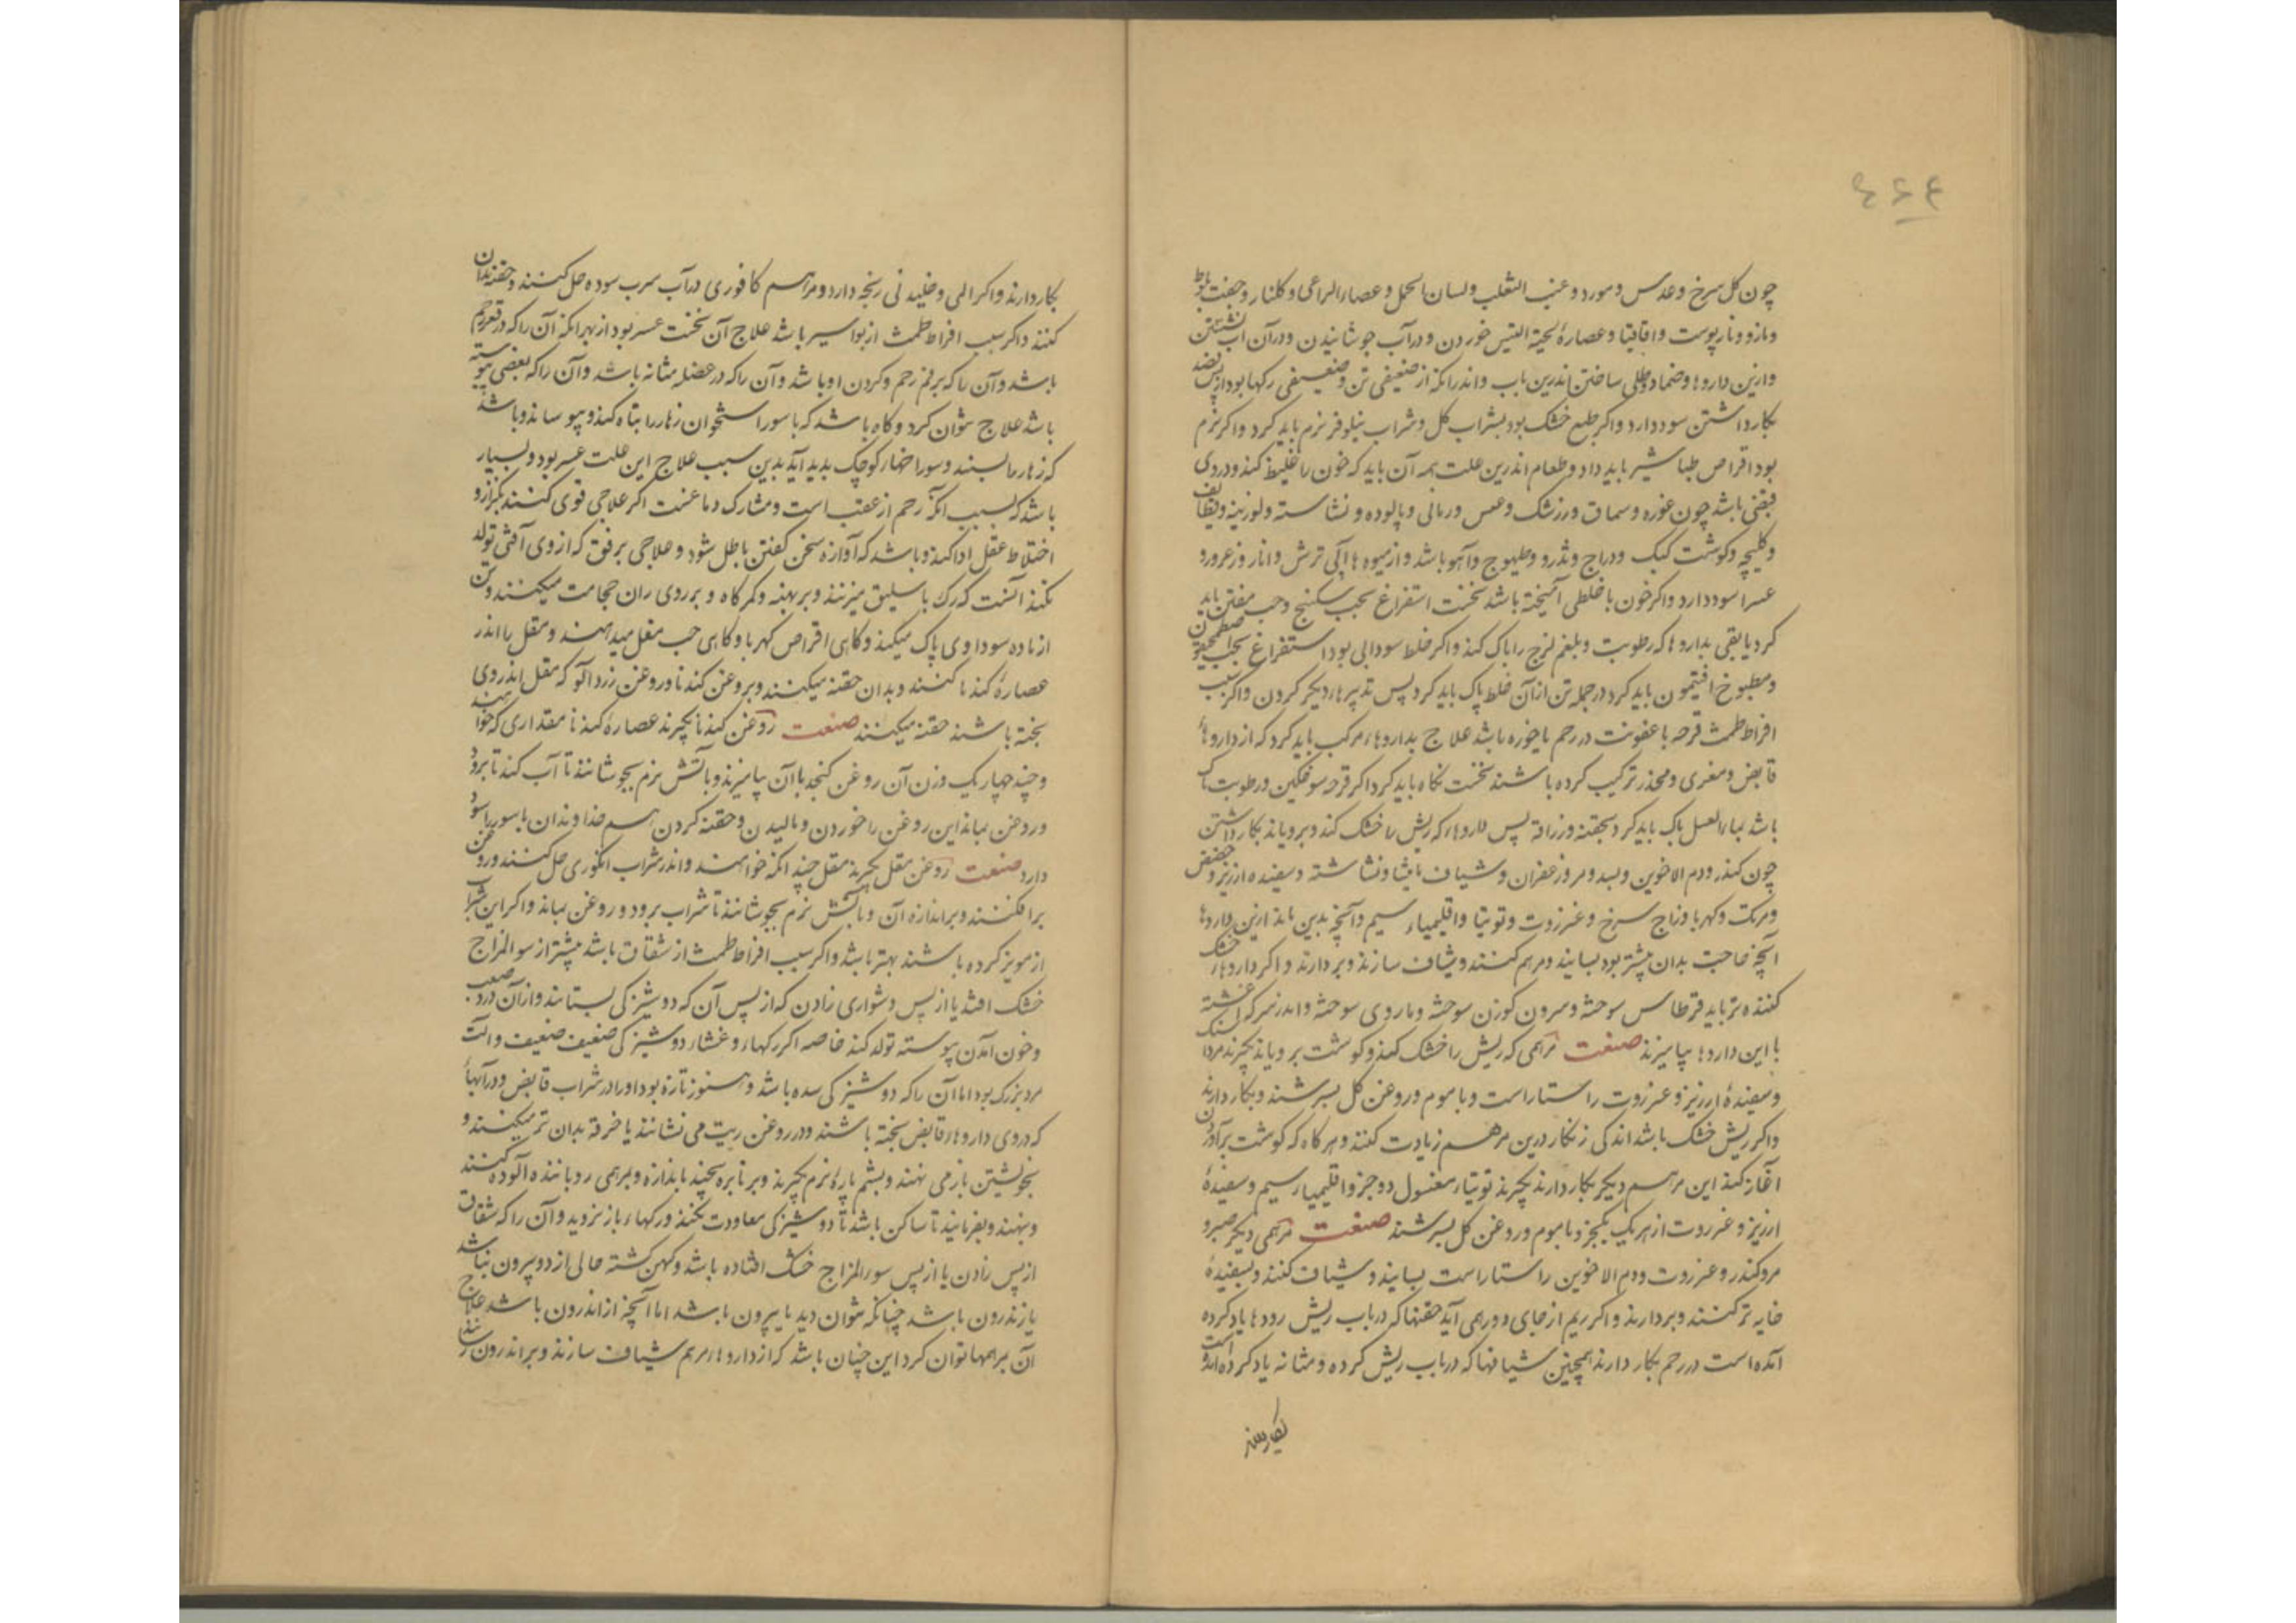 ۴۶۴
چون کل سرخ و عدس و مورد و عنب الثعلب و لسان الحمل و عصا الراعی و کلنار و جفت بلوط
و مازو و نار پوست و اقاقیا و عصارهٔ لحیة التیس خوردن و در آب جوشانیدن و در آن آب نشستن
و ازین داروها و ضماد و طلی ساختن اندرین باب و اندر انکه از ضعیفی تن و ضعیفی رکها بود از پس فصد
بکار داشتن سود دارد و اکر طبع خشک بود بشراب کل و شراب نیلوفر نرم باید کرد و اکر نرم
بود اقراص طباشیر باید داد و طعام اندرین علت همه آن باید که خون را غلیظ کند و در وی
قبضی باشد چون غوره و سماق و زرشک و عدس و رمانی و پالوده و نشاسته و لوزینه و قطایف
و کلیچه و کوشت کبک و دراج و تذرو و طیهوج و آهو باشد و از میوه ها آبی ترش و انار و زعرور و
عسرا سود دارد و اکر خون با خلطی آمیخته باشد نخست استفراغ بحب سکبنج و حب منتن باید
کرد یا بقی بداروها که رطوبت و بلغم لزج را پاک کند و اکر خلط سودایی بود استفراغ بحب اصطمخیقون
و مطبوخ افتیمون باید کرد در جمله تن از آن خلط پاک باید کرد پس تدبیرها دیکر کردن و اکر سبب
افراط طمث قرحه با عفونت در رحم یا خوره باشد علاج بداروهاء مرکب باید کرد که از داروهاء
قابض و مغری و مخدر ترکیب کرده باشند نخست نکاه باید کرد اکر قرحه شوخکین و رطوبت ناک
باشد بماء العسل پاک باید کرد بحقنه و زراقه پس داروهاء که ریش را خشک کند و برویاند بکار داشتن
چون کندر و دم الاخوین و بسد و مر و زعفران و شیاف مامیثا و نشاسته و سفیده ارزیز و حضض
و مرتک و کهربا و زاج سرخ و عنزروت و توتیا و اقلیمیاء سیم و آنچه بدین ماند ازین داروها
آنچه حاجت بدان بیشتر بود بسایند و مرهم کنند و شیاف سازند و بردارند و اکر داروهاء خشک
کننده تر باید قرطاس سوخته و سرون کوزن سوخته و ماروی سوخته و اندر سرکه آغشته
با این داروها بیامیزند صنعت مرهمی که ریش را خشک کند و کوشت برویاند بکیرند مردا سنک
و سفیدهٔ ارزیز و عنزروت راستاراست و با موم و روغن کل بسرشند و بکار دارند
و اکر ریش خشک باشد اندکی زنکار درین مرهم زیادت کنند و هرکاه که کوشت برآوردن
آغاز کند این مرهم دیکر بکار دارند بکیرند توتیاء مغسول دو جزو اقلیمیاء سیم و سفیدهٔ
ارزیز و عنزروت از هر یک یکجزو با موم و روغن کل بسرشند صنعت مرهمی دیکر صبر و
مر و کندر و عنزروت و دم الاخوین راستاراست بسایند و شیاف کنند و بسفیدهٔ
خایه تر کنند و بردارند و اکر ریم از جای دور همی آید حقنها که در باب ریش رودها یاد کرده
آمده است در رحم بکار دارند همچنین شیافها که در باب ریش کرده و مثانه یاد کرده آمده است
بکار دارند و اکر المی و خلیدنی رنجه دارد و مرهم کافوری در آب سرب سوده حل کنند و حقنه بدان
کنند و اکر سبب افراط طمث از بواسیر باشد علاج آن سخت عسر بود از بهر انکه آن را که در قعر رحم
باشد و آن را که بر فم رحم و کردن او باشد و آن را که در عضله مثانه باشد و آن را که بعضی پیوسته
باشد علاج نتوان کرد و کاه باشد که باسور استخوان زهار را تباه کند و بپوساند و باشد
که زهار سوراخهاء کوچک پدید آید بدین سبب علاج این علت عسر بود و بسیار
باشد که بسبب انکه رحم از عقب است و مشارک دماغست اکر علاجی قوی کنند بکزاز و
اختلاط عقل ادا کند و باشد که آوازه سخن کفتن باطل شود و علاجی برفق که از وی آفتی تولد
نکند آنست که رک باسلیق میزنند و بر پهنه و کمرکاه و بر روی ران حجامت میکنند و تن
از ماده سوداوی پاک میکند و کاهی اقراص کهربا و کاهی حب مقل میدهند و مقل را اندر
عصارهٔ کندنا کنند و بدان حقنه میکنند و بروغن کندنا و روغن زردآلو که مقل اندر وی
پخته باشند حقنه میکنند صنعت روغن کندنا بکیرند عصارهٔ کندنا مقداری که خواهند
و چند چهار یک وزن آن روغن کنجد با آن بیامیزند و باتش نرم بجوشانند تا آب کندنا برود
و روغن بماند این روغن را خوردن و مالیدن و حقنه کردن هم خداوندان باسور را سود
دارد صنعت روغن مقل بکیرند مقل چند انکه خواهند و اندر شراب انکوری حل کنند و روغن
برافکنند و بر اندازه آن و باتش نرم بجوشانند تا شراب برود و روغن بماند و اکر این شراب
از مویز کرده باشند بهتر باشد و اکر سبب افراط طمث از شقاق باشد بیشتر از سوء المزاج
خشک افتد یا از پس دشواری زادن که از پس آن که دوشیزکی بستانند و از آن درد صعب
و خون آمدن پیوسته تولد کند خاصه اکر رکهاء و غشاء دوشیزکی ضعیف ضعیف و آلت
مرد بزرک بود اما آن را که دوشیزکی سده باشد و هنوز تازه بود او را در شراب قابض و در آبهاء
که در وی داروهاء قابض پخته باشند و در روغن زیت می نشانند یا خرقه بدان تر میکنند و
بخویشتن باز می نهند و پشم پارهٔ نرم بکیرند و بر نابره پیچند باندازه و بمرهمی رویاننده آلوده کنند
و بنهند و بفرمایند تا ساکن باشد تا دوشیزکی معاودت نکند و رکهاء باز نزدید و آن را که شقاق
از پس زادن یا از پس سوء المزاج خشک افتاده باشد و کهن کشته حالی از دو بیرون نباشد
یا ز اندرون باشد چنانکه نتوان دید یا بیرون باشد اما آنچه از اندرون باشد علاج
آن بمرهمها توان کرد این چنان باشد که از داروهاء مرهم شیاف سازند و بر اندرون رسانند